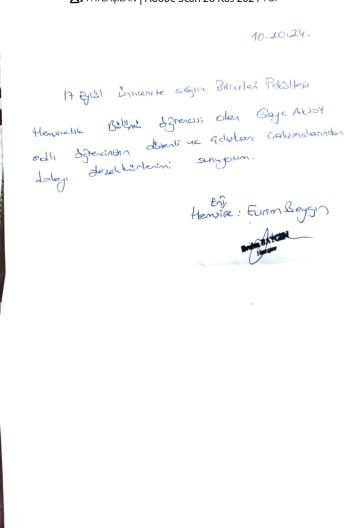 10.10.24.
17 Eylül Üniversite sağlık Bilimleri Fakültesi
Hemşirelik Bölümü öğrencisi olan Gaye Aksoy
adlı öğrencinizin düzenli ve çalışmalarından
dolayı teşekkürlerimi sunuyorum.
Enf.
Hemşire: Evrim Baygın